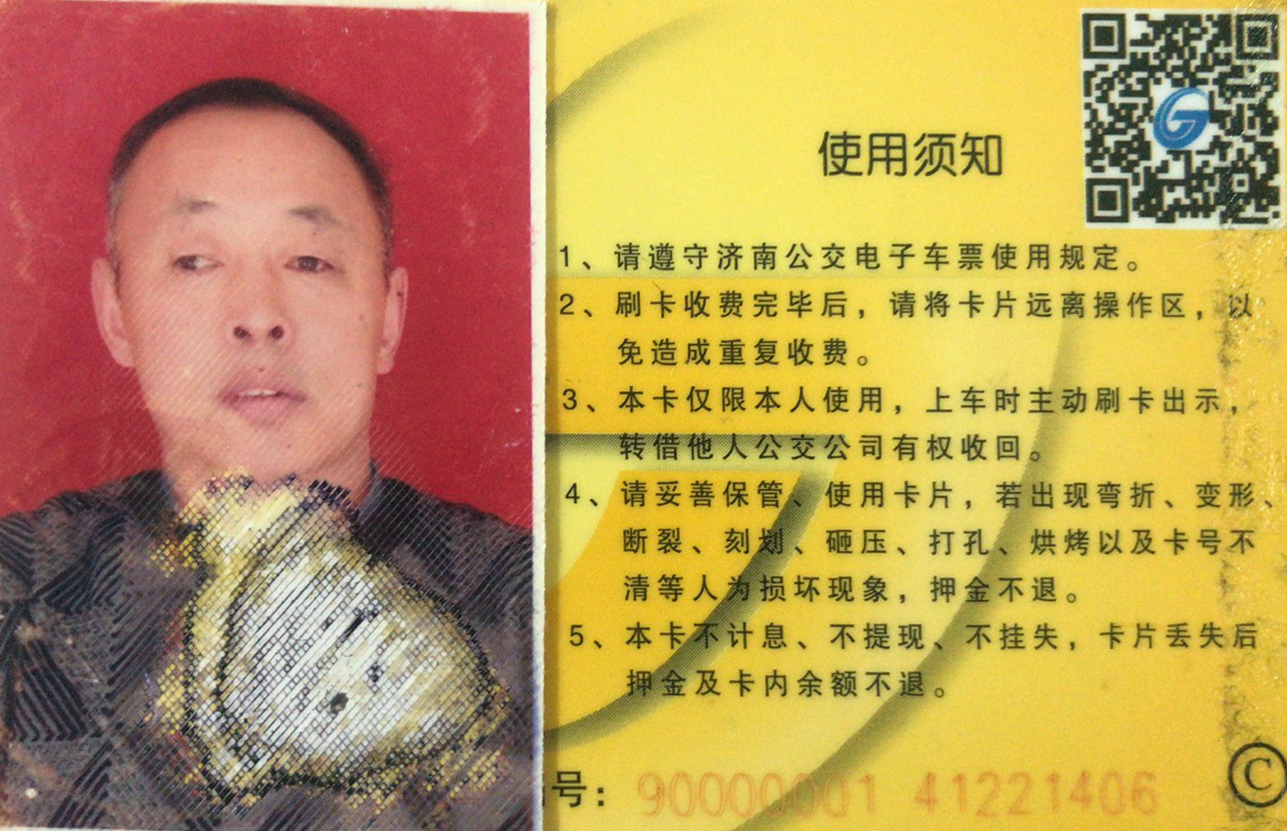 使用须知
1、请遵守济南公交电子车票使用规定。
2、刷卡收费完毕后，请将卡片远离操作区，以
免造成重复收费。
3、本卡仅限本人使用，上车时主动刷卡出示，
转借他人公交公司有权收回。
4、请妥善保管、使用卡片，若出现弯折、变形、
断裂、刻划、砸压、打孔、烘烤以及卡号不
清等人为损坏现象，押金不退。
5、本卡不计息、不提现、不挂失，卡片丢失后
押金及卡内余额不退。
号：90000001 41221406
Ⓒ